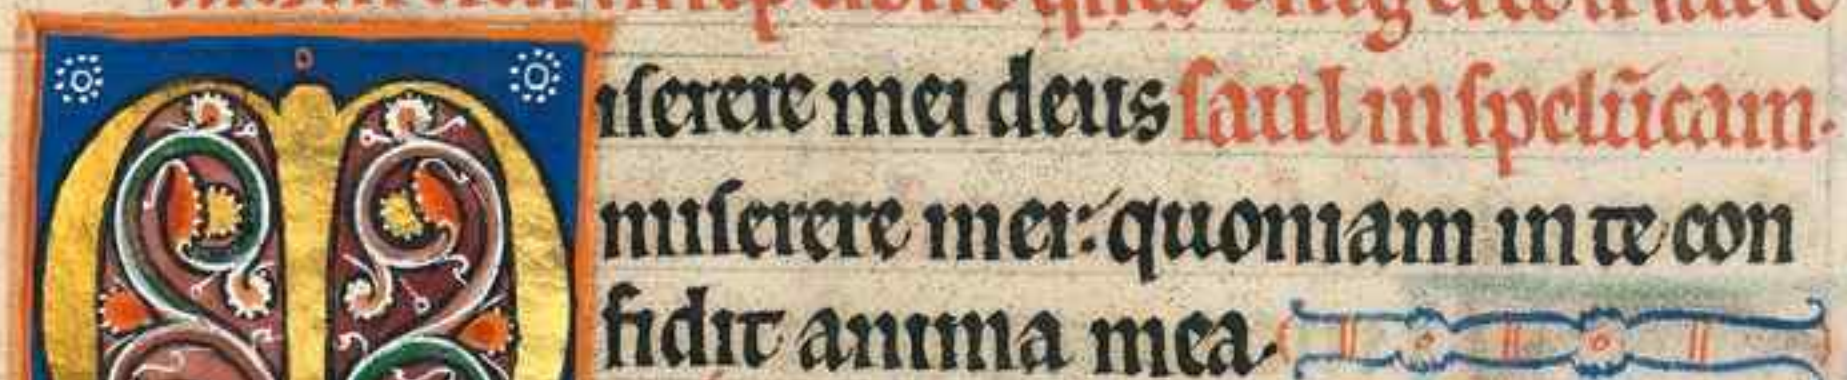 Miserere mei deus saul in spelūcam.
miserere mei: quoniam in te con
fidit anima mea.